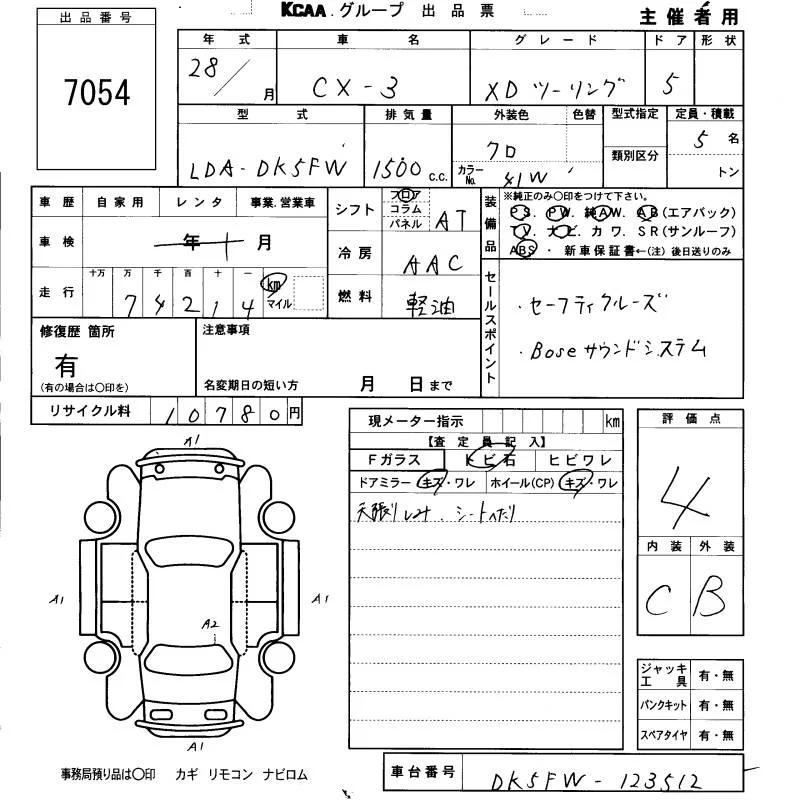 KCAA グループ 出品票
主催者用
出品番号
7054
年式 車名 グレード ドア 形状
28/ 月 CX-3 XDツーリング 5
型式 排気量 外装色 色替 型式指定 定員・積載
LDA-DK5FW 1500 c.c. クロ カラーNo. 41W 類別区分 5名 トン
車歴 自家用 レンタ 事業.営業車
車検 年 月
走行 十万 万 千 百 十 一
7 4 2 1 4 km マイル
シフト フロア コラム パネル AT
冷房 AAC
燃料 軽油
装備品 ※純正のみ○印をつけて下さい。
PS. PW. 純AW. AB(エアバック)
TV. ナビ. カワ. SR(サンルーフ)
ABS・ 新車保証書←(注) 後日送りのみ
セールスポイント
・セーフティクルーズ
・Boseサウンドシステム
修復歴 箇所
有
(有の場合は○印を)
注意事項
名変期日の短い方 月 日まで
リサイクル料 10780円
現メーター指示 km
【査定員記入】
Fガラス トビ石 ヒビワレ
ドアミラー キズ・ワレ ホイール(CP) キズ・ワレ
天張りしみ、シートへたり
評価点
4
内装 外装
C B
A1
A1 A1
A2
A1
ジャッキ工具 有・無
パンクキット 有・無
スペアタイヤ 有・無
事務局預り品は○印 カギ リモコン ナビロム
車台番号 DK5FW-123512